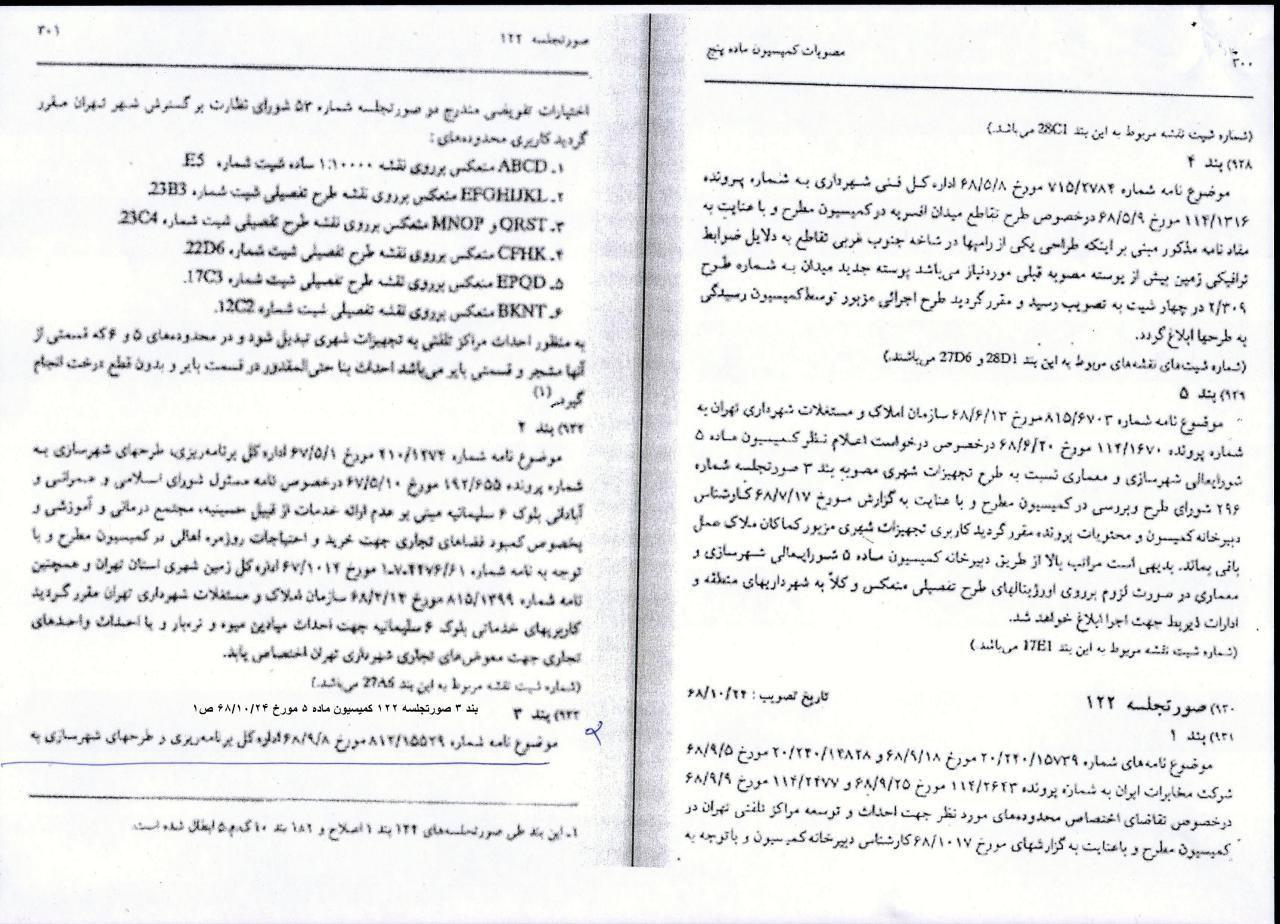 ۳۰۰
مصوبات کمیسیون ماده پنج
(شماره شیت نقشه مربوط به این بند 28C1 می‌باشد.)
۹۲۸) بند ۴
موضوع نامه شماره ۷۱۵/۲۷۸۴ مورخ ۶۸/۵/۸ اداره کل فنی شهرداری به شماره پرونده
۱۱۴/۱۳۱۶ مورخ ۶۸/۵/۹ درخصوص طرح تقاطع میدان افسریه در کمیسیون مطرح و با عنایت به
مفاد نامه مذکور مبنی بر اینکه طراحی یکی از رامپها در شاخه جنوب غربی تقاطع به دلایل ضوابط
ترافیکی زمین بیش از پوسته مصوبه قبلی موردنیاز می‌باشد پوسته جدید میدان به شماره طرح
۲/۳۰۹ در چهار شیت به تصویب رسید و مقرر گردید طرح اجرائی مزبور توسط کمیسیون رسیدگی
به طرحها ابلاغ گردد.
(شماره شیت‌های نقشه‌های مربوط به این بند 28D1 و 27D6 می‌باشند.)
۹۲۹) بند ۵
موضوع نامه شماره ۸۱۵/۶۷۰۳ مورخ ۶۸/۶/۱۳ سازمان املاک و مستغلات شهرداری تهران به
شماره پرونده ۱۱۴/۱۶۷۰ مورخ ۶۸/۶/۲۰ درخصوص درخواست اعلام نظر کمیسیون ماده ۵
شورایعالی شهرسازی و معماری نسبت به طرح تجهیزات شهری مصوبه بند ۳ صورتجلسه شماره
۲۹۶ شورای طرح و بررسی در کمیسیون مطرح و با عنایت به گزارش مورخ ۶۸/۷/۱۷ کارشناس
دبیرخانه کمیسون و محتویات پرونده مقرر گردید کاربری تجهیزات شهری مزبور کماکان ملاک عمل
باقی بماند. بدیهی است مراتب بالا از طریق دبیرخانه کمیسیون ماده ۵ شورایعالی شهرسازی و
معماری در صورت لزوم برروی اورژینالهای طرح تفصیلی منعکس و کلاً به شهرداریهای منطقه و
ادارات ذیربط جهت اجرا ابلاغ خواهد شد.
(شماره شیت نقشه مربوط به این بند 17E1 می‌باشد.)
۹۳۰) صورتجلسه ۱۲۲
تاریخ تصویب : ۶۸/۱۰/۲۴
۹۳۱) بند ۱
موضوع نامه‌های شماره ۲۰/۲۴۰/۱۵۷۳۹ مورخ ۶۸/۹/۱۸ و ۲۰/۲۴۰/۱۴۸۲۸ مورخ ۶۸/۹/۵
شرکت مخابرات ایران به شماره پرونده ۱۱۴/۲۶۲۳ مورخ ۶۸/۹/۲۵ و ۱۱۴/۲۴۷۷ مورخ ۶۸/۹/۹
درخصوص تقاضای اختصاص محدوده‌های مورد نظر جهت احداث و توسعه مراکز تلفنی تهران در
کمیسیون مطرح و باعنایت به گزارشهای مورخ ۶۸/۱۰۱۷ کارشناس دبیرخانه کمیسیون و باتوجه به
صورتجلسه ۱۲۲
۳۰۱
اختیارات تفویضی مندرج دو صورتجلسه شماره ۵۳ شورای نظارت بر گسترش شهر تهران مقرر
گردید کاربری محدوده‌های :
۱ـ ABCD منعکس برروی نقشه ۱:۱۰۰۰۰ ساده شیت شماره E5.
۲ـ EFGHIJKL منعکس برروی نقشه طرح تفصیلی شیت شماره 23B3.
۳ـ QRST و MNOP منعکس برروی نقشه طرح تفصیلی شیت شماره 23C4.
۴ـ CFHK منعکس برروی نقشه طرح تفصیلی شیت شماره 22D6.
۵ـ EPQD منعکس برروی نقشه طرح تفصیلی شیت شماره 17C3.
۶ـ BKNT منعکس برروی نقشه تفصیلی شیت شماره 12C2.
به منظور احداث مراکز تلفنی به تجهیزات شهری تبدیل شود و در محدوده‌های ۵ و ۶ که قسمتی از
آنها مشجر و قسمتی بایر می‌باشد احداث بنا حتی‌المقدور در قسمت بایر و بدون قطع درخت انجام
گیرد.(۱)
۹۳۲) بند ۲
موضوع نامه شماره ۲۱۰/۱۲۷۴ مورخ ۶۷/۵/۱ اداره کل برنامه‌ریزی، طرحهای شهرسازی به
شماره پرونده ۱۹۲/۶۵۵ مورخ ۶۷/۵/۱۰ درخصوص نامه مسئول شورای اسلامی و عمرانی و
آبادانی بلوک ۶ سلیمانیه مبنی بر عدم ارائه خدمات از قبیل حسینیه، مجتمع درمانی و آموزشی و
بخصوص کمبود فضاهای تجاری جهت خرید و احتیاجات روزمره اهالی در کمیسیون مطرح و با
توجه به نامه شماره ۱ـ۷ـ۴۴۷۶/۶۱ مورخ ۶۷/۱۰۱۲ اداره کل زمین شهری استان تهران و همچنین
نامه شماره ۸۱۵/۱۳۹۹ مورخ ۶۸/۲/۱۳ سازمان املاک و مستغلات شهرداری تهران مقرر گردید
کاربریهای خدماتی بلوک ۶ سلیمانیه جهت احداث میادین میوه و تره‌بار و یا احداث واحدهای
تجاری جهت معوض‌های تجاری شهرداری تهران اختصاص یابد.
(شماره شیت نقشه مربوط به این بند 27A6 می‌باشد.)
۹۳۳) بند ۳ بند ۳ صورتجلسه ۱۲۲ کمیسیون ماده ۵ مورخ ۶۸/۱۰/۲۴ ص۱
موضوع نامه شماره ۸۱۲/۱۵۵۲۹ مورخ ۶۸/۹/۸ اداره کل برنامه‌ریزی و طرحهای شهرسازی به
۱ـ این بند طی صورتجلسه‌های ۱۲۴ بند ۱ اصلاح و ۱۸۲ بند ۱۰ ک.م.۵ ابطال شده است.